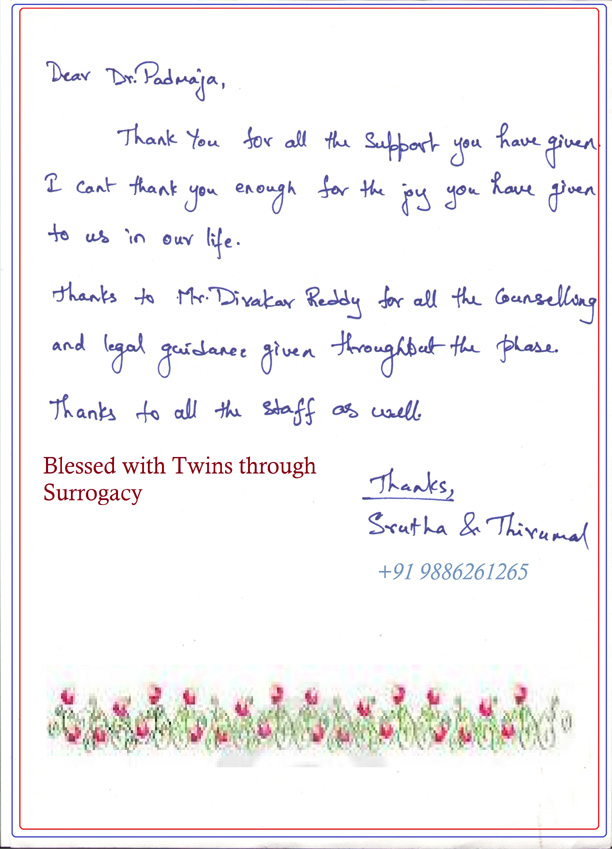 Dear Dr. Padmaja,
Thank You for all the Support you have given.
I cant thank you enough for the joy you have given
to us in our life.
Thanks to Mr. Divakar Reddy for all the Counselling
and legal guidance given throughout the phase.
Thanks to all the staff as well.
Blessed with Twins through
Surrogacy
Thanks,
Srutha & Thirumal
+91 9886261265